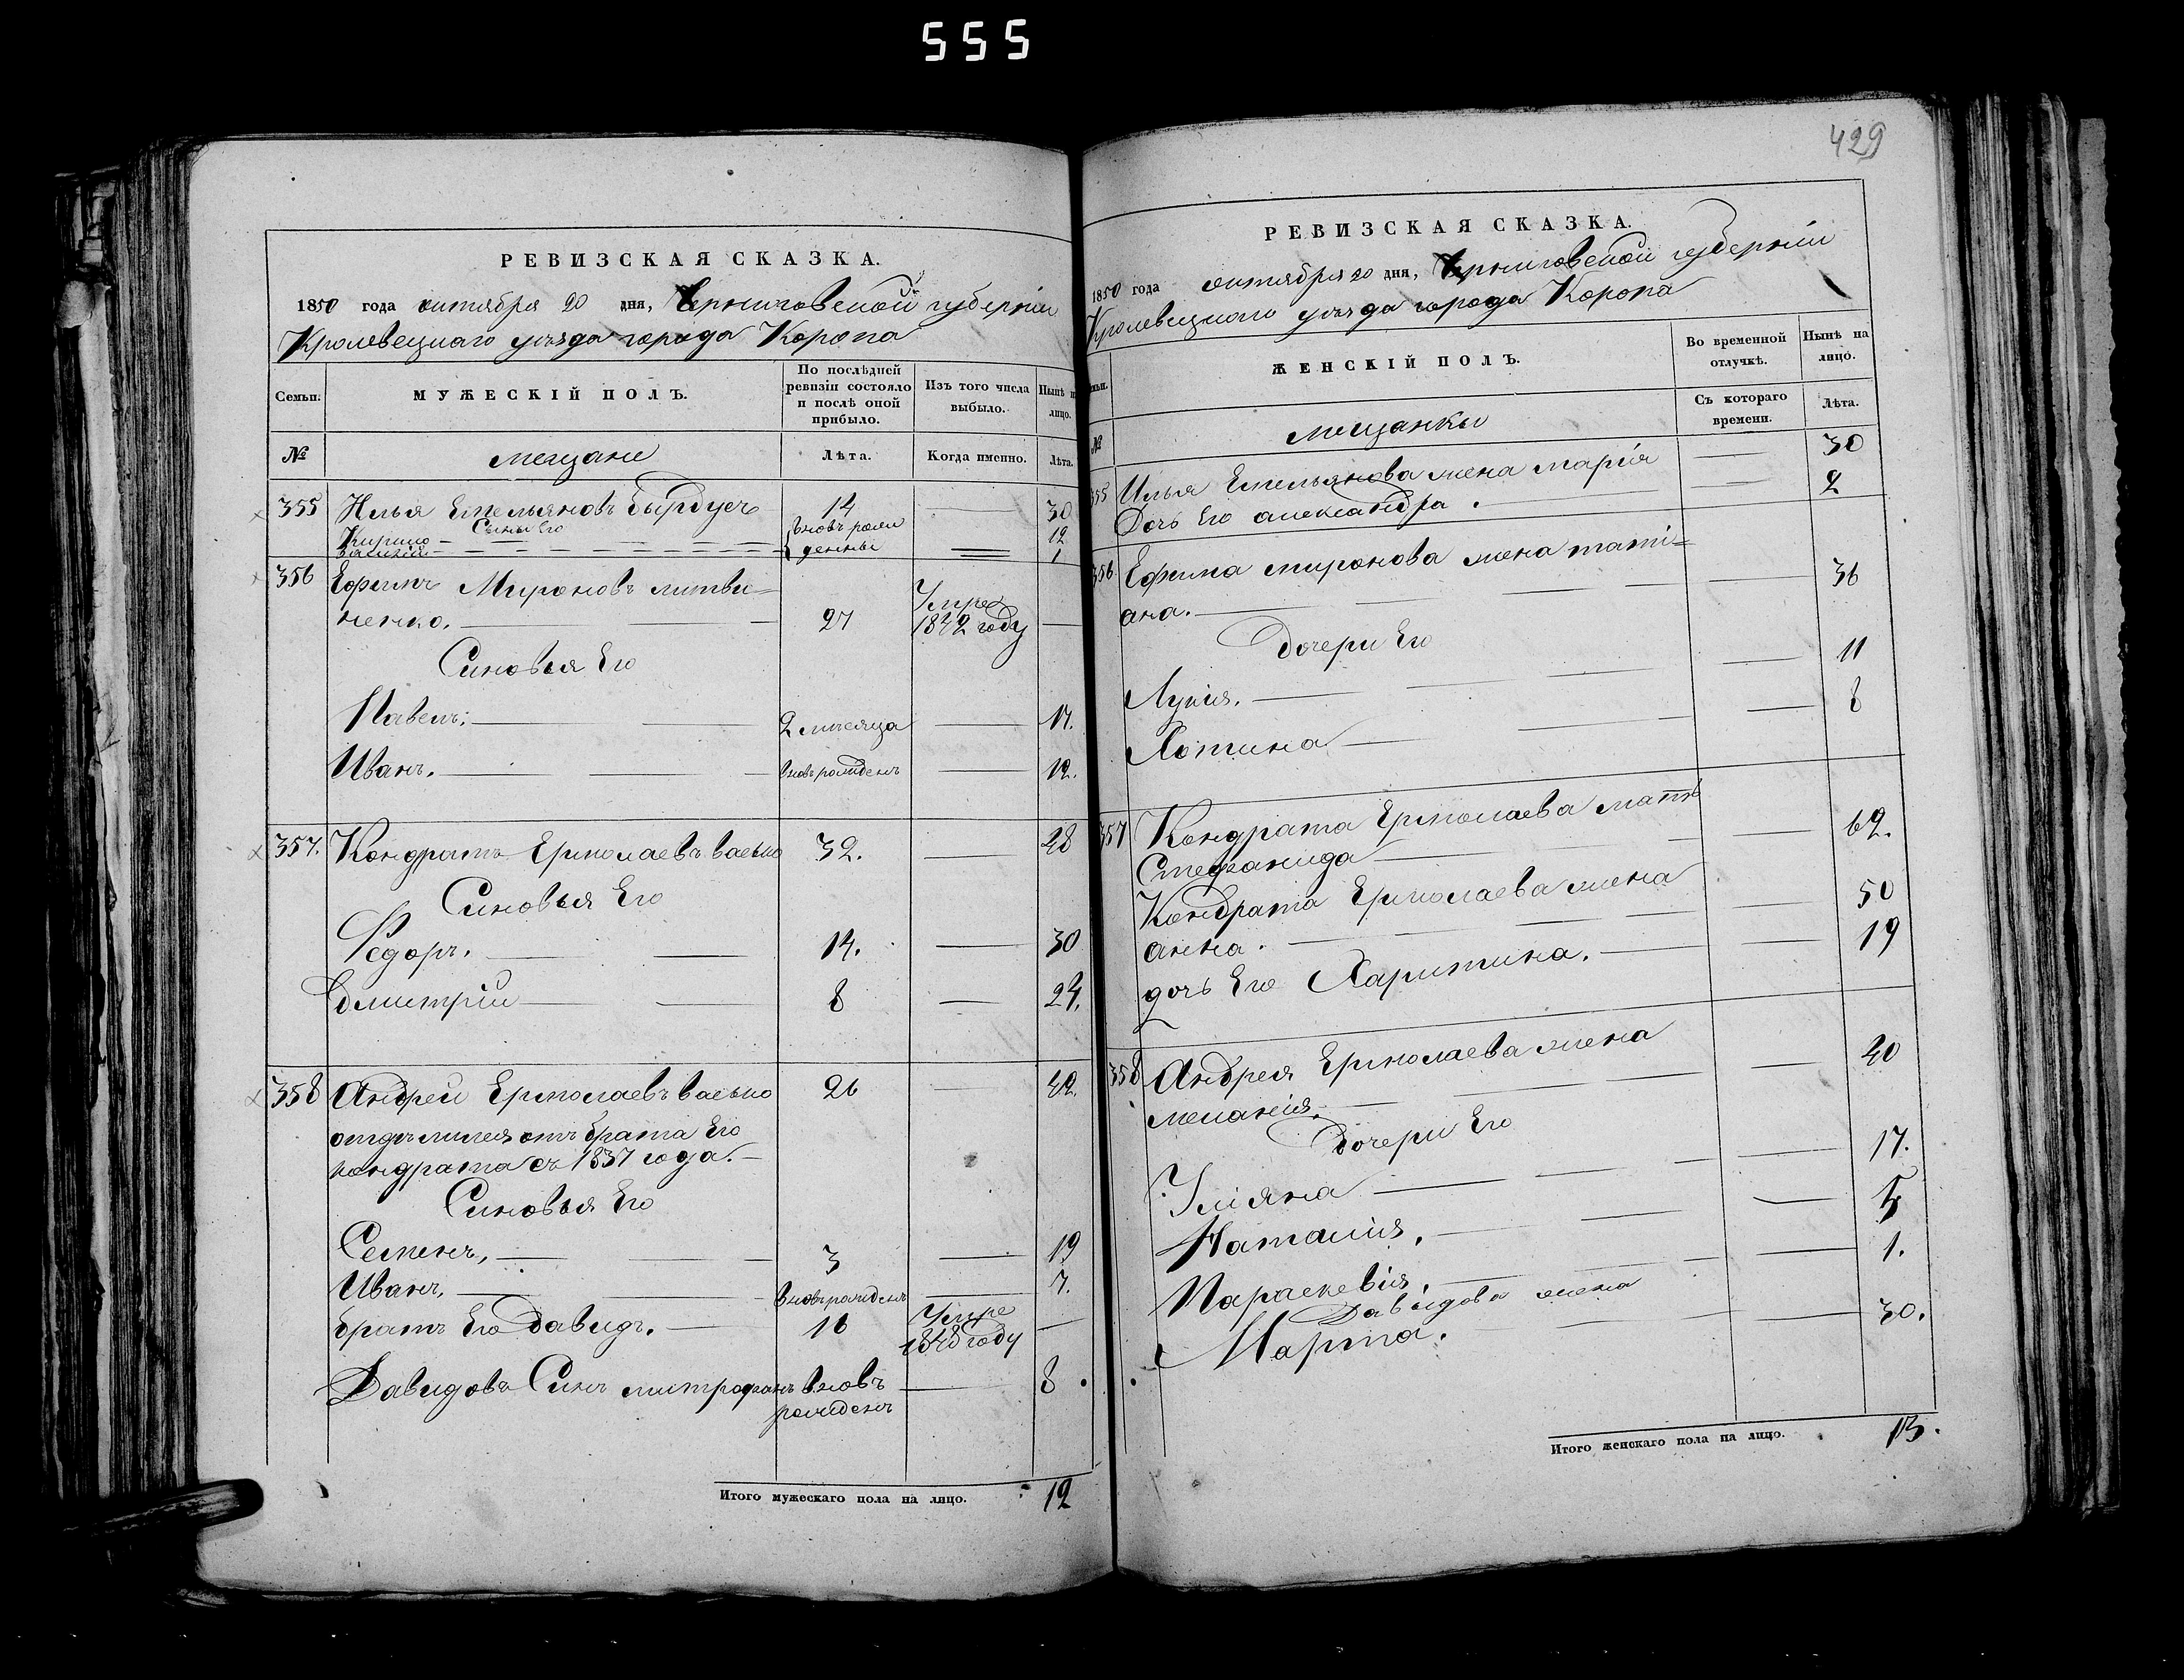 555
РЕВИЗСКАЯ СКАЗКА.
1850 года октября 20 дня, Черниговской губерніи
Кролевецкаго уѣзда города Коропа
Семьи.
МУЖЕСКІЙ ПОЛЪ.
По послѣдней ревизіи состояло и послѣ оной прибыло.
Изъ того числа выбыло.
Нынѣ на лицо.
№
мещане
Лѣта.
Когда именно.
Лѣта.
355 Илья Емельяновъ 14 30
Сыны Его
Кирило вновь рож 12
Василій денны 1
356 Ефимъ Мироновъ литви=
ненко. 27 Умре 1842 году
Синовья Его
Павелъ. 2 мѣсяца 17.
Иванъ. вновь рожденъ 12.
357. Кондратъ Ермолаевъ васько 32. 48
Синовья Его
Федоръ. 14. 30
Дмитрій 8 24.
358 Андрей Ермолаевъ васько 26 42.
отдѣлился отъ брата Его
кондрата съ 1837 года.
Синовья Его
Семенъ, 3 19
Иванъ, вновь рожденъ 7.
братъ Его Давидъ. 16 Умре 1848 году
Давидовъ Синъ митрофанъ вновь рожденъ 8.
Итого мужескаго пола на лицо. 12
429
РЕВИЗСКАЯ СКАЗКА.
1850 года октября 20 дня, Черниговской губерніи
Кролевецкаго уѣзда города Коропа
Семьи.
ЖЕНСКІЙ ПОЛЪ.
Во временной отлучкѣ.
Нынѣ на лицо.
Съ котораго времени.
Лѣта.
№
мещанки
355 Илья Емельянова жена марія 30
Дочь Его александра. 2
356 Ефима миронова жена тати=
ана. 36
Дочери Его
Лукія. 11
Хотина 8
357 Кондрата Ермолаева мать
Стефанида 62.
Кондрата Ермолаева жена
анна. 50
дочь Его Харитина. 19
358 Андрея Ермолаева жена 40
меланія.
Дочери Его
Уліяна 17.
Наталія. 5
Параскевія. 1.
Давидова жена
Марта. 30.
Итого женскаго пола на лицо. 13.